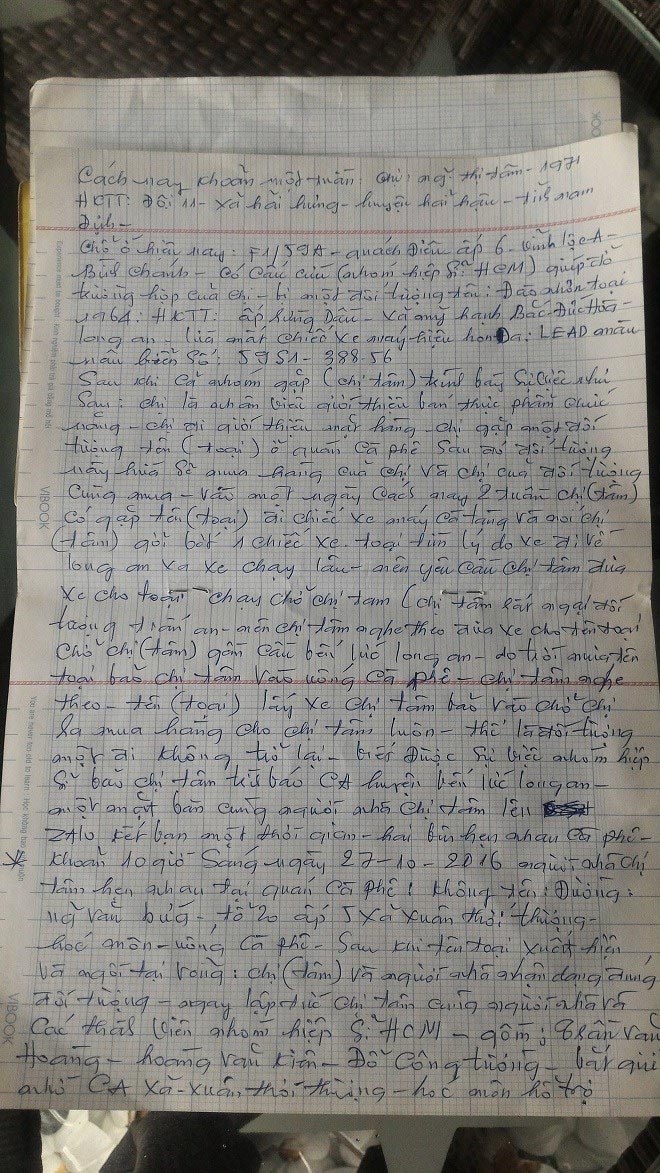 Cách nay khoản một tuần: chị: ngz thị tâm - 1971
HKTT: Đội 11 - xã hải hưng - huyện hải hậu - tỉnh nam
Định -
Chổ ở hiện nay: F1/59A - quách Điêu ấp 6 - Vĩnh lộc A -
Bình chánh - có cầu cứu (nhóm hiệp sĩ HCM) giúp đở
trường hợp của chị - bị một đối tượng tên: Đào nhơn toại
1964: HKTT: ấp hưng Dẫu - xã mỹ hạnh Bắc Đức Hòa -
long an - lừa mất chiếc xe máy hiệu honDa: LEAD màu
nâu biển số: 59S1 - 388.56
Sau khi cả nhóm gặp (chị tâm) trình bày sự việc như
sau: chị là nhân viên giới thiệu bán thực phẩm chức
năng - chị đi giới thiệu mặt hàng - chị gặp một đối
tượng tên (toại) ở quán cà phê sau đó đối tượng
nầy hứa sẽ mua hàng của chị và chị của đối tượng
cũng mua - vào một ngày cách nay 2 tuần chị (tâm)
có gặp tên (toại) đi chiếc xe máy cà tàng và nói chị
(tâm) gởi bớt 1 chiếc xe. toại tìm lý do xe đi về
long an xa xe chạy lâu - nên yêu cầu chị tâm đưa
xe cho toại chạy chở chị tâm (chị tâm rất ngại đối
tượng trấn an - nên chị tâm nghe theo đưa xe cho tên toại
chở chị (tâm) gần cầu bến lức long an - do trời mưa tên
toại bảo chị tâm vào uống cà phê - chị tâm nghe
theo - tên (toại) lấy xe chị tâm bảo vào chở chị
ra mua hàng cho chị tâm luôn - thế là đối tượng
một đi không trở lại - biết được sự việc nhóm hiệp
sĩ bảo chị tâm trình báo CA huyện bến lức long an -
một mặt bàn cùng người nhà chị tâm lên
ZAlo kết bạn một thời gian - hai bên hẹn nhau cà phê -
* khoản 10 giờ sáng ngày 27-10-2016 người nhà chị
tâm hẹn nhau tại quán cà phê: không tên: Đường:
ng văn bứa - tổ 20 ấp 5 xã xuân thới thượng -
hóc môn - uống cà phê - sau khi tên toại xuất hiện
và ngồi tại võng: chị (tâm) và người nhà nhận dạng đúng
đối tượng - ngay lập tức chị tâm cùng người nhà và
các thành viên nhóm hiệp sĩ HCM - gồm: Trần văn
Hoàng - hoàng văn kiên - Đỗ công tường - bắt gửi
nhờ CA xã - xuân thới thượng - hóc môn hổ trợ
VIBOOK
VIBOOK